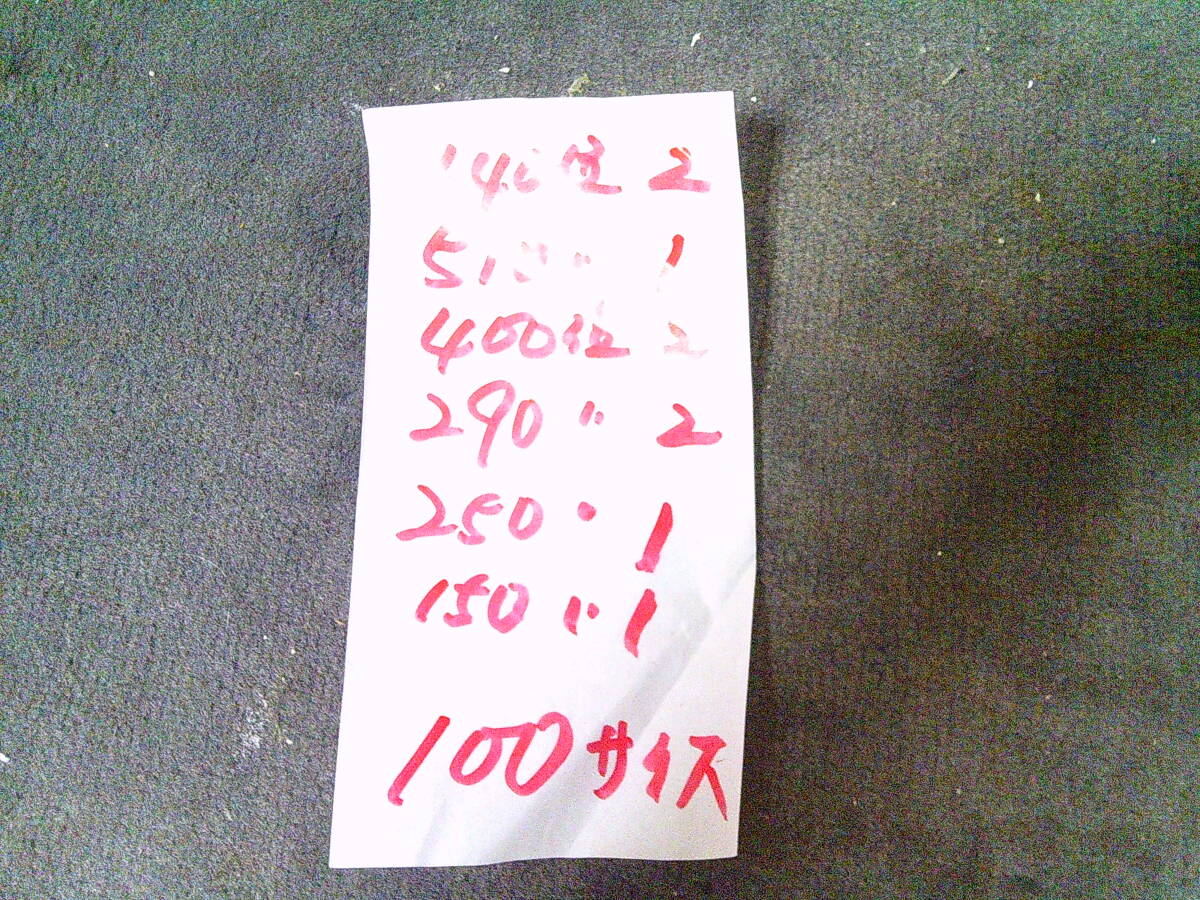 140位 2
510〃 1
400位 2
290〃 2
250〃 1
150〃 1
100サイズ